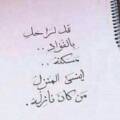 قل لراحل
بالفؤاد ..
مسكنه ..
أينسى المنزل
من كان نازله .